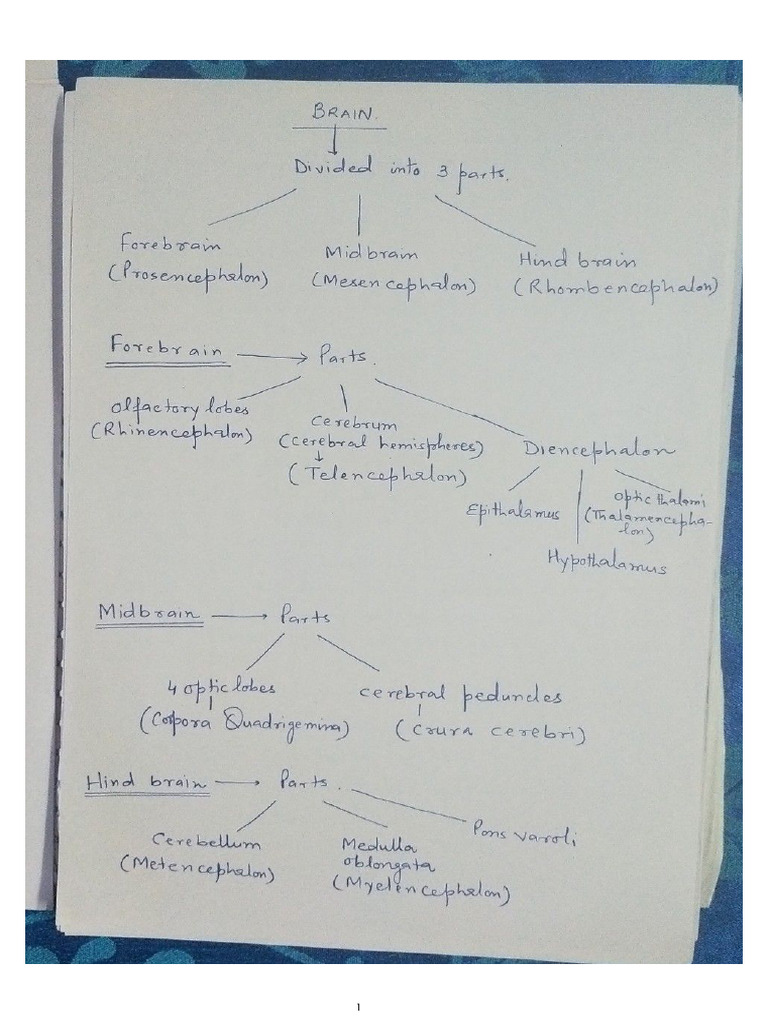 BRAIN.
Divided into 3 parts.
Forebrain
(Prosencephalon)
Midbrain
(Mesencephalon)
Hind brain
(Rhombencephalon)
Forebrain → Parts.
Olfactory lobes
(Rhinencephalon)
Cerebrum
(Cerebral hemispheres)
(Telencephalon)
Diencephalon
Epithalamus
Optic thalami
(Thalamencepha-
lon)
Hypothalamus
Midbrain → Parts
4 optic lobes
(Corpora Quadrigemina)
Cerebral peduncles
(Crura cerebri)
Hind brain → Parts.
Cerebellum
(Metencephalon)
Medulla
oblongata
(Myelencephalon)
Pons varoli
1